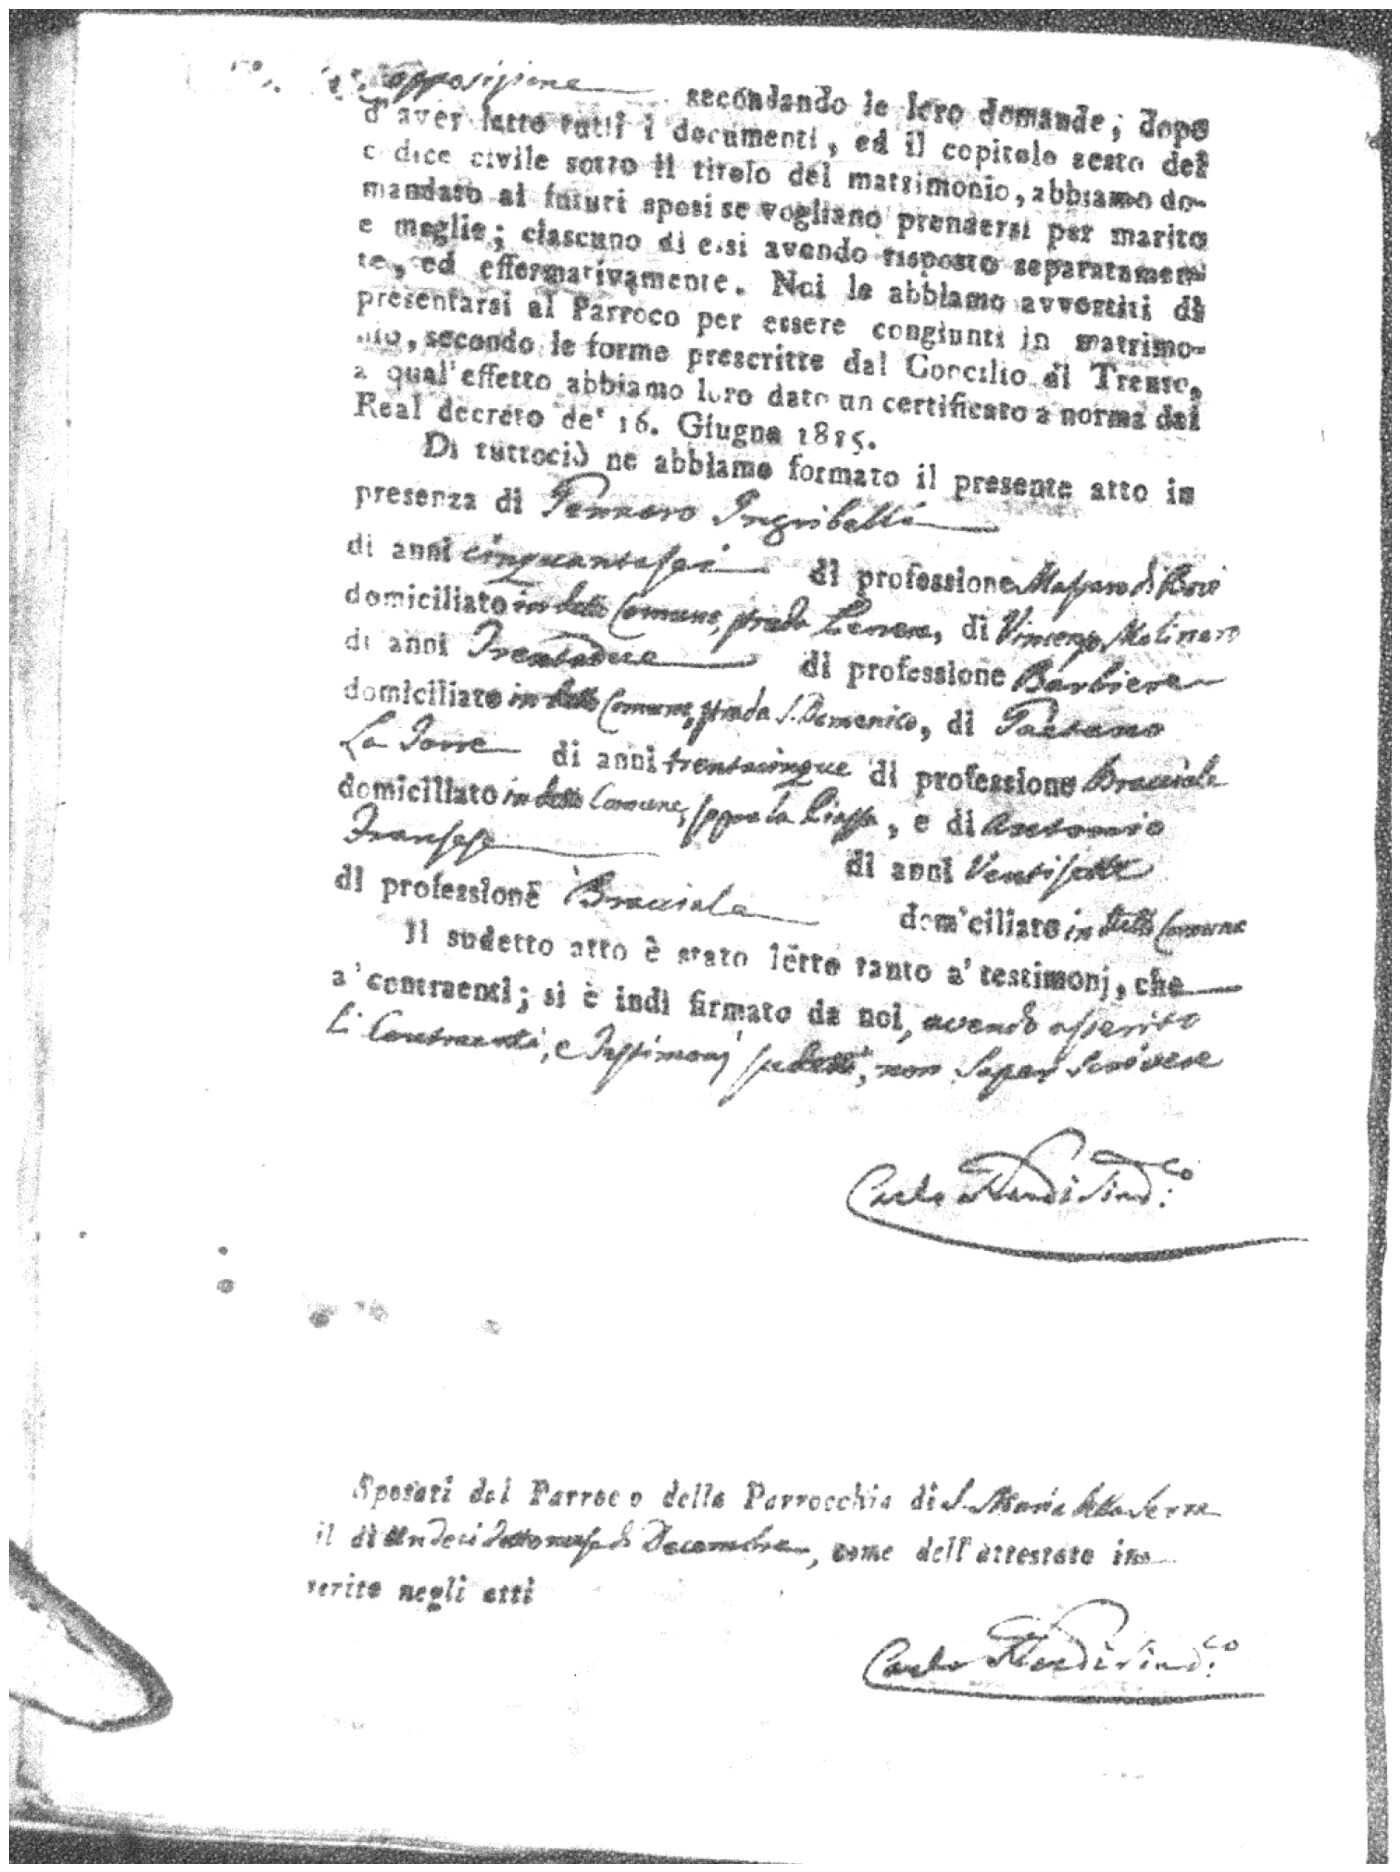 opposizione secondando le loro domande; dopo
d'aver letto tutti i documenti, ed il capitolo sesto del
codice civile sotto il titolo del matrimonio, abbiamo do-
mandato ai futuri sposi se vogliano prendersi per marito
e moglie; ciascuno di essi avendo risposto separatamen-
te, ed effermativamente. Noi le abbiamo avvertiti di
presentarsi al Parroco per essere congiunti in matrimo-
nio, secondo le forme prescritte dal Concilio di Trento,
a qual'effetto abbiamo loro dato un certificato a norma del
Real decreto de' 16. Giugno 1815.
Di tuttociò ne abbiamo formato il presente atto in
presenza di Gennaro Ingribelli
di anni cinquantasei di professione Massaro di Bovi
domiciliato in detto Comune, strada di Vincenzo Molinaro
di anni Trentadue di professione Barbiere
domiciliato in detto Comune, strada S. Domenico, di Gaetano
La Torre di anni trentacinque di professione Bracciale
domiciliato in detto Comune, sopra la Piazza, e di Antonio
di anni Ventisette
di professione Bracciale dom'ciliato in detto Comune
Il sudetto atto è stato letto tanto a' testimonj, che
a' contraenti; si è indi firmato da noi, avendo asserito
li Contraenti, e Testimonj sudetti, non saper scrivere
Carlo Sind.co
Sposati dal Parroco della Parrocchia di S. Maria della Serra
il dì undeci detto mese di Decembre, come dell'attestato in-
serito negli atti
Carlo Sind.co